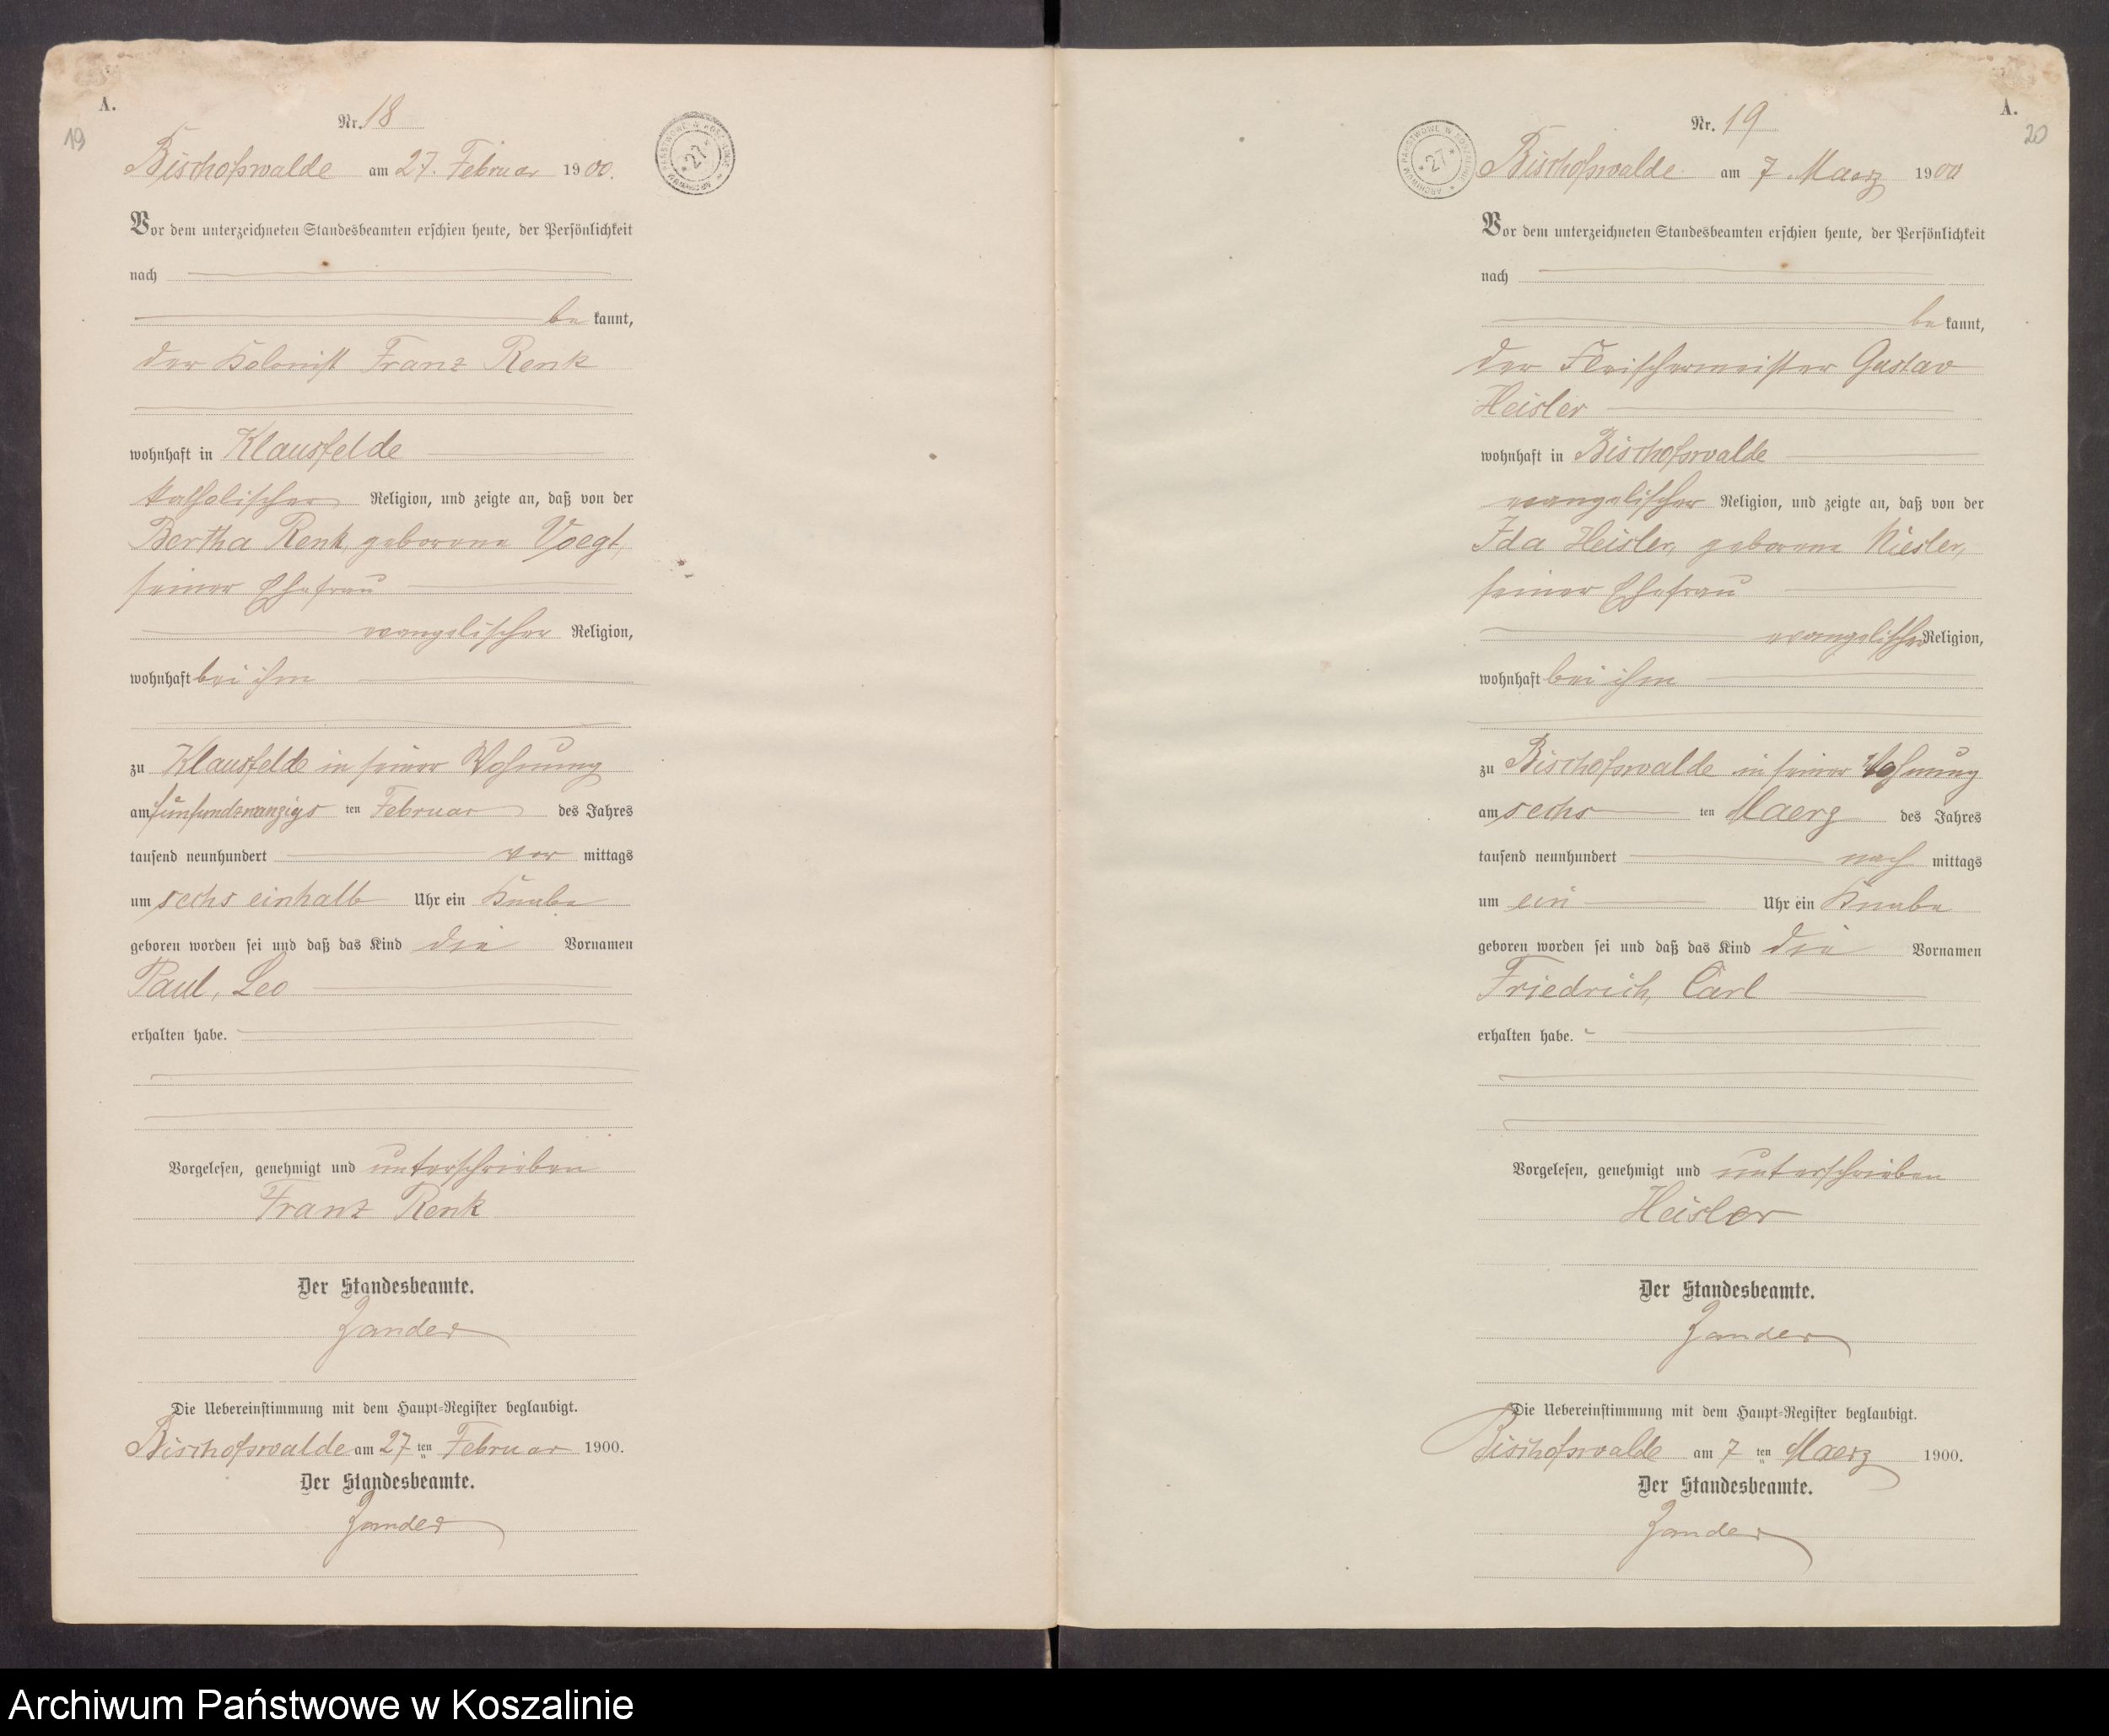 A.
19
Nr. 18
Bischofswalde am 27. Februar 1900.
ARCHIWUM PAŃSTWOWE W KOSZALINIE * 27 *
Vor dem unterzeichneten Standesbeamten erschien heute, der Persönlichkeit
nach
be kannt,
der Kolonist Franz Renk
wohnhaft in Klausfelde
katholischer Religion, und zeigte an, daß von der
Bertha Renk, geborene Voegt,
seiner Ehefrau
evangelischer Religion,
wohnhaft bei ihm
zu Klausfelde in seiner Wohnung
am fünfundzwanzigs ten Februar des Jahres
tausend neunhundert vor mittags
um sechs einhalb Uhr ein Knabe
geboren worden sei und daß das Kind die Vornamen
Paul, Leo
erhalten habe.
Vorgelesen, genehmigt und unterschrieben
Franz Renk
Der Standesbeamte.
Zander
Die Uebereinstimmung mit dem Haupt-Register beglaubigt.
Bischofswalde am 27 ten Februar 1900.
Der Standesbeamte.
Zander
A.
20
Nr. 19
ARCHIWUM PAŃSTWOWE W KOSZALINIE * 27 *
Bischofswalde am 7 Maerz 1900
Vor dem unterzeichneten Standesbeamten erschien heute, der Persönlichkeit
nach
be kannt,
der Fleischermeister Gustav
Heisler
wohnhaft in Bischofswalde
evangelischer Religion, und zeigte an, daß von der
Ida Heisler, geborene Niesler,
seiner Ehefrau
evangelischer Religion,
wohnhaft bei ihm
zu Bischofswalde in seiner Wohnung
am sechs ten Maerz des Jahres
tausend neunhundert nach mittags
um ein Uhr ein Knabe
geboren worden sei und daß das Kind die Vornamen
Friedrich, Carl
erhalten habe.
Vorgelesen, genehmigt und unterschrieben
Heisler
Der Standesbeamte.
Zander
Die Uebereinstimmung mit dem Haupt-Register beglaubigt.
Bischofswalde am 7 ten Maerz 1900.
Der Standesbeamte.
Zander
Archiwum Państwowe w Koszalinie